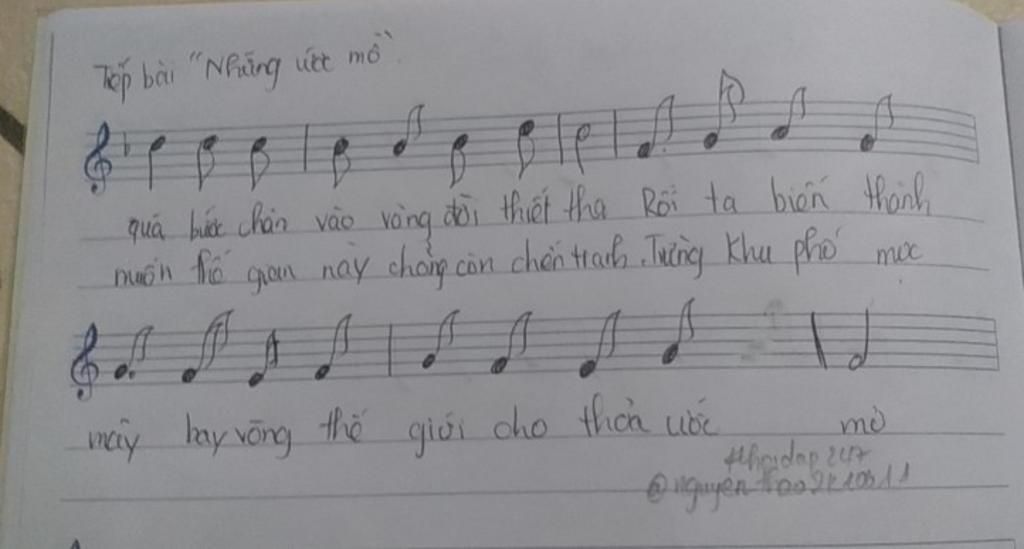 Tiếp bài "Những ước mơ"
quả bước chân vào vòng đời thiết tha Rồi ta biến thành
muốn thế gian này chẳng còn chiến tranh. Từng khu phố mọc
mây bay vòng thế giới cho thoả ước mơ